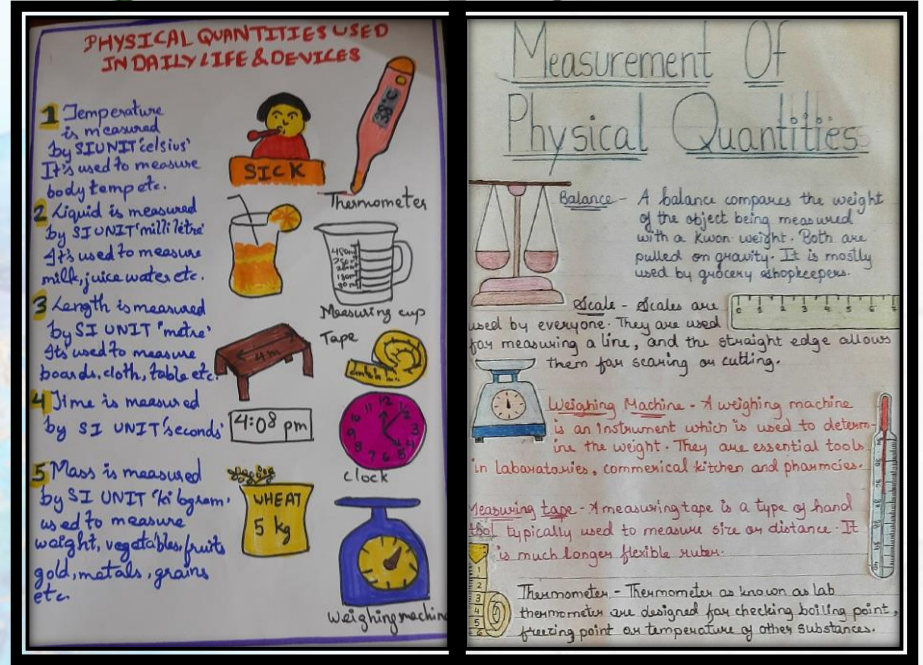 PHYSICAL QUANTITIES USED
IN DAILY LIFE & DEVICES
1 Temperature
is measured
by SI UNIT 'celsius'
It's used to measure
body temp etc.
SICK
38°C
Thermometer
2 Liquid is measured
by SI UNIT 'milli letre'
It's used to measure
milk, juice water etc.
Measuring cup
3 Length is measured
by SI UNIT 'metre'
Its used to measure
boards, cloth, table etc.
4m
Tape
4 Time is measured
by SI UNIT 'seconds'
4:08 pm
clock
5 Mass is measured
by SI UNIT 'kilogram'
used to measure
weight, vegetables, fruits
gold, metals, grains
etc.
WHEAT
5 kg
weighing machine
Measurement Of
Physical Quantities
Balance - A balance compares the weight
of the object being measured
with a kwon weight. Both are
pulled on gravity. It is mostly
used by grocery shopkeepers.
Scale - Scales are
used by everyone. They are used
for measuring a line, and the straight edge allows
them for scaring or cutting.
Weighing Machine - A weighing machine
is an instrument which is used to determ-
ine the weight. They are essential tools
in labaratories, commerical kitchen and pharmcies.
Measuring tape - A measuring tape is a type of hand
tool typically used to measure size or distance. It
is much longer flexible ruber.
Thermometer - Thermometer as known as lab
thermometer are designed for checking boiling point,
freezing point or temperature of other substances.